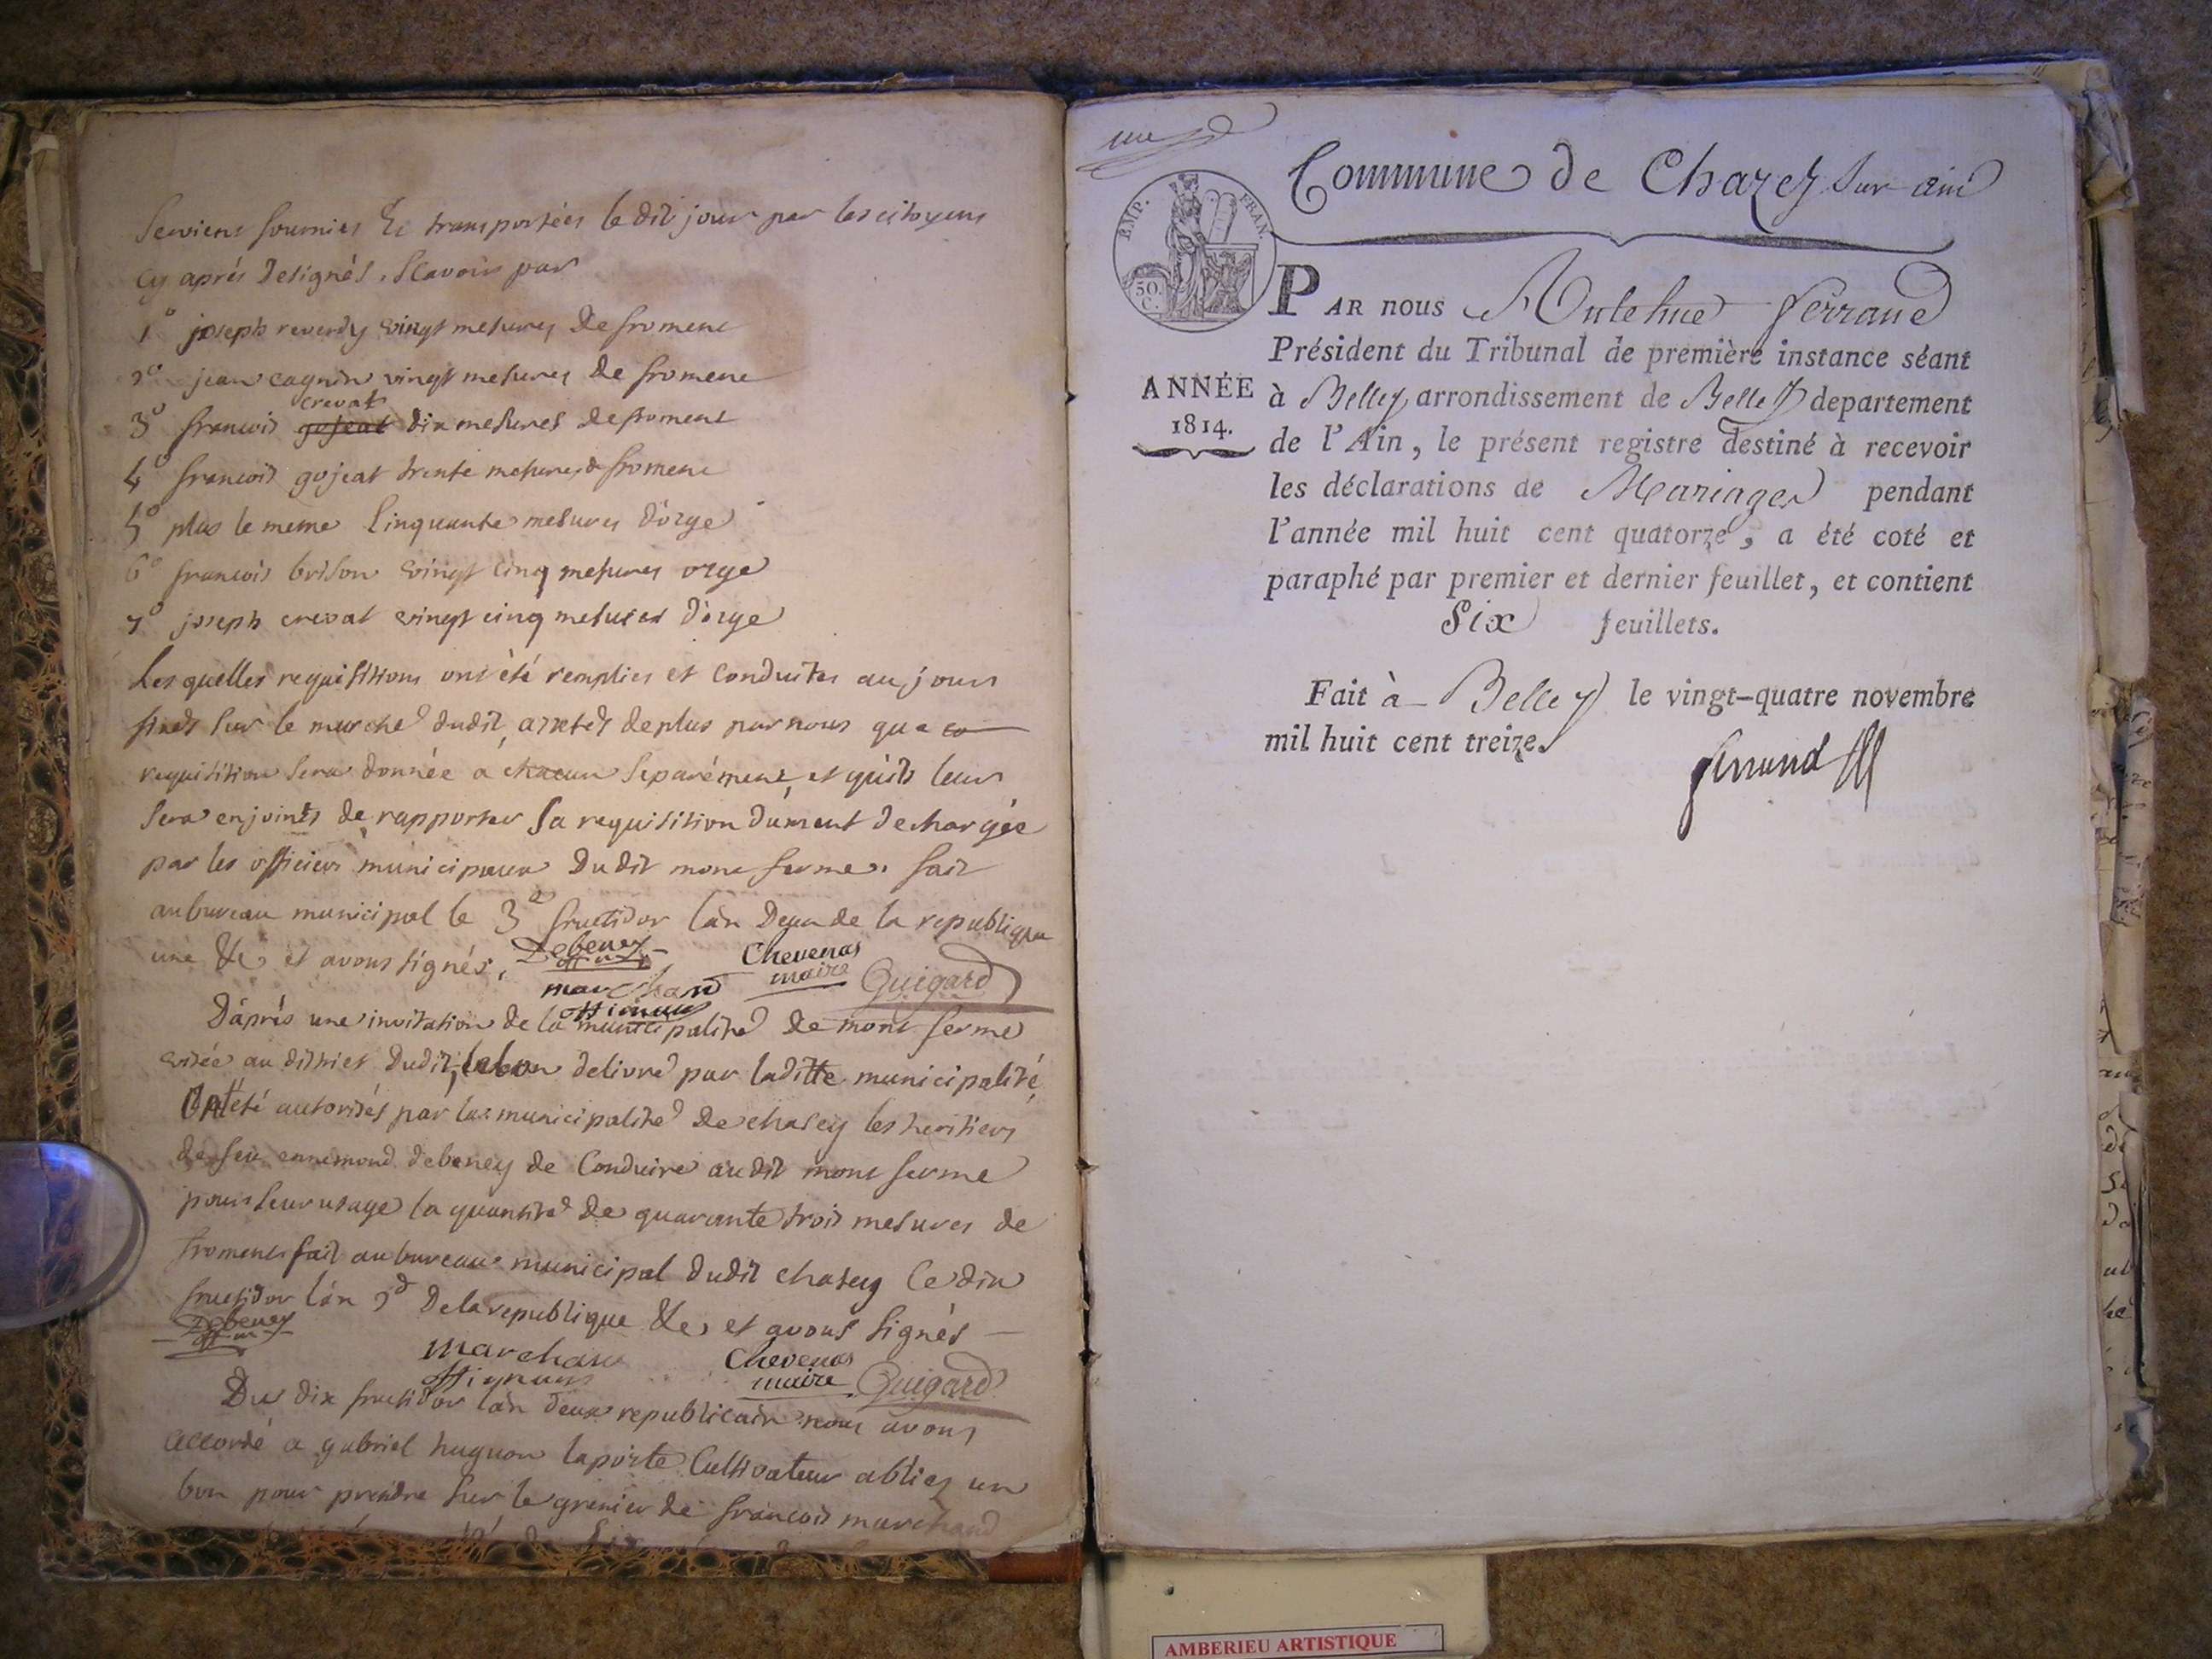 seroient fournies & transportées le dit jour par les citoyens
cy aprés designés. Scavoir par
1º joseph reverdy vingt mesures de froment
2º jean cagnin vingt mesures de froment
crevat
3º francois gojeat dix mesures de froment
4º francois gojeat trente mesures de froment
5º plus le meme Cinquante mesures d'orge
6º francois brison vingt cinq mesures orge
7º joseph crevat vingt cinq mesures d'orge
Lesquelles requisitions ont été remplies et Conduites au jours
fixés sur le marché dudit, arretés de plus par nous que
requisition sera donnée a chacun separément, et qu'ils leurs
sera enjoints de rapporter sa requisition dument dechargée
par les officiers municipaux dudit mont ferme. fait
au bureau municipal le 3e fructidor l'an Deux de la republique
une &c et avons signés.
Debeney
off m
Chevenas
maire
Guigard
marchand
D'áprés une invitation de la municipalité de mont ferme
visée au district dudit, le bon delivré par laditte municipalité
Ont été autorisés par la municipalité de chasey les heritiers
de feu ennemond debeney de Conduire audit mont ferme
pour leur usage la quantité de quarante trois mesures de
froment fait au bureau municipal dudit chasey Ce dix
fructidor l'án 2d De la republique &c, et avons signés
Debeney
off m
marchand
Chevenas
maire
Guigard
Du dix fructidor l'an deux republicain nous avons
accordé a gabriel huguon laporte Cultivateur a blies un
bon pour prendre sur le grenier de francois marchand
une
Commune de Chazey sur ain
EMP. FRAN.
50.
C.
PAR NOUS Anthelme ferrand
Président du Tribunal de première instance séant
ANNÉE
1814.
à Belley arrondissement de Belley departement
de l'Ain, le présent registre destiné à recevoir
les déclarations de Mariages pendant
l'année mil huit cent quatorze, a été coté et
paraphé par premier et dernier feuillet, et contient
Six feuillets.
Fait à Belley le vingt-quatre novembre
mil huit cent treize.
ferrand
AMBERIEU ARTISTIQUE